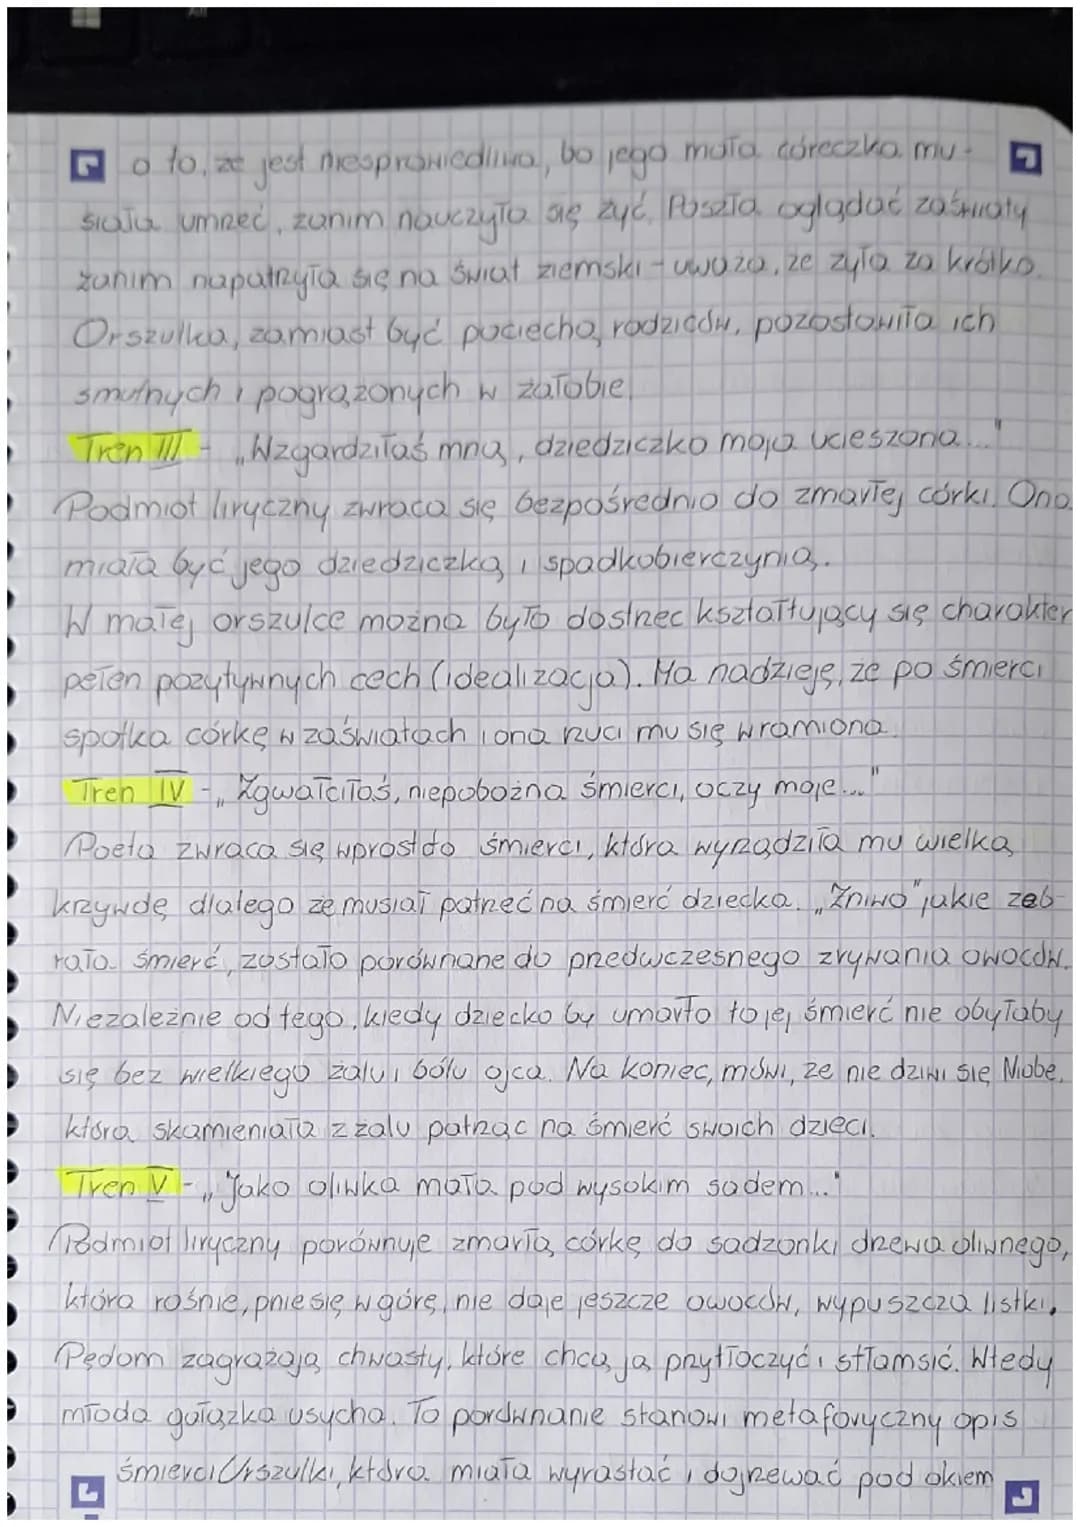 o to, że jest niesprawiedliwa, bo jego mała córeczka mu-
siała umrzeć, zanim nauczyła się żyć. Poszła oglądać zaświaty
zanim napatrzyła się na świat ziemski - uważa, że żyła za krótko.
Orszulka, zamiast być pociechą rodziców, pozostawiła ich
smutnych i pogrążonych w żałobie.
Tren III - „Wzgardziłaś mną, dziedziczko moja ucieszona..."
Podmiot liryczny zwraca się bezpośrednio do zmarłej córki. Ona
miała być jego dziedziczką i spadkobierczynią.
W małej orszulce można było dostrzec kształtujący się charakter
pełen pozytywnych cech (idealizacja). Ma nadzieję, że po śmierci
spotka córkę w zaświatach i ona rzuci mu się w ramiona.
Tren IV - „Zgwałciłaś, niepobożna śmierci, oczy moje..."
Poeta zwraca się wprost do śmierci, która wyrządziła mu wielką
krzywdę dlatego że musiał patrzeć na śmierć dziecka. „Żniwo" jakie zeb-
rała śmierć, zostało porównane do przedwczesnego zrywania owoców.
Niezależnie od tego, kiedy dziecko by umarło to jej śmierć nie obyłaby
się bez wielkiego żalu i bólu ojca. Na koniec, mówi, że nie dziwi się Niobe,
która skamieniała z żalu patrząc na śmierć swoich dzieci.
Tren V - „Jako oliwka mała pod wysokim sadem..."
Podmiot liryczny porównuje zmarłą córkę do sadzonki drzewa oliwnego,
która rośnie, pnie się w górę, nie daje jeszcze owoców, wypuszcza listki.
Pędom zagrażają chwasty, które chcą ją przytłoczyć i stłamsić. Wtedy
młoda gałązka usycha. To porównanie stanowi metaforyczny opis
śmierci Urszulki, która miała wyrastać i dojrzewać pod okiem